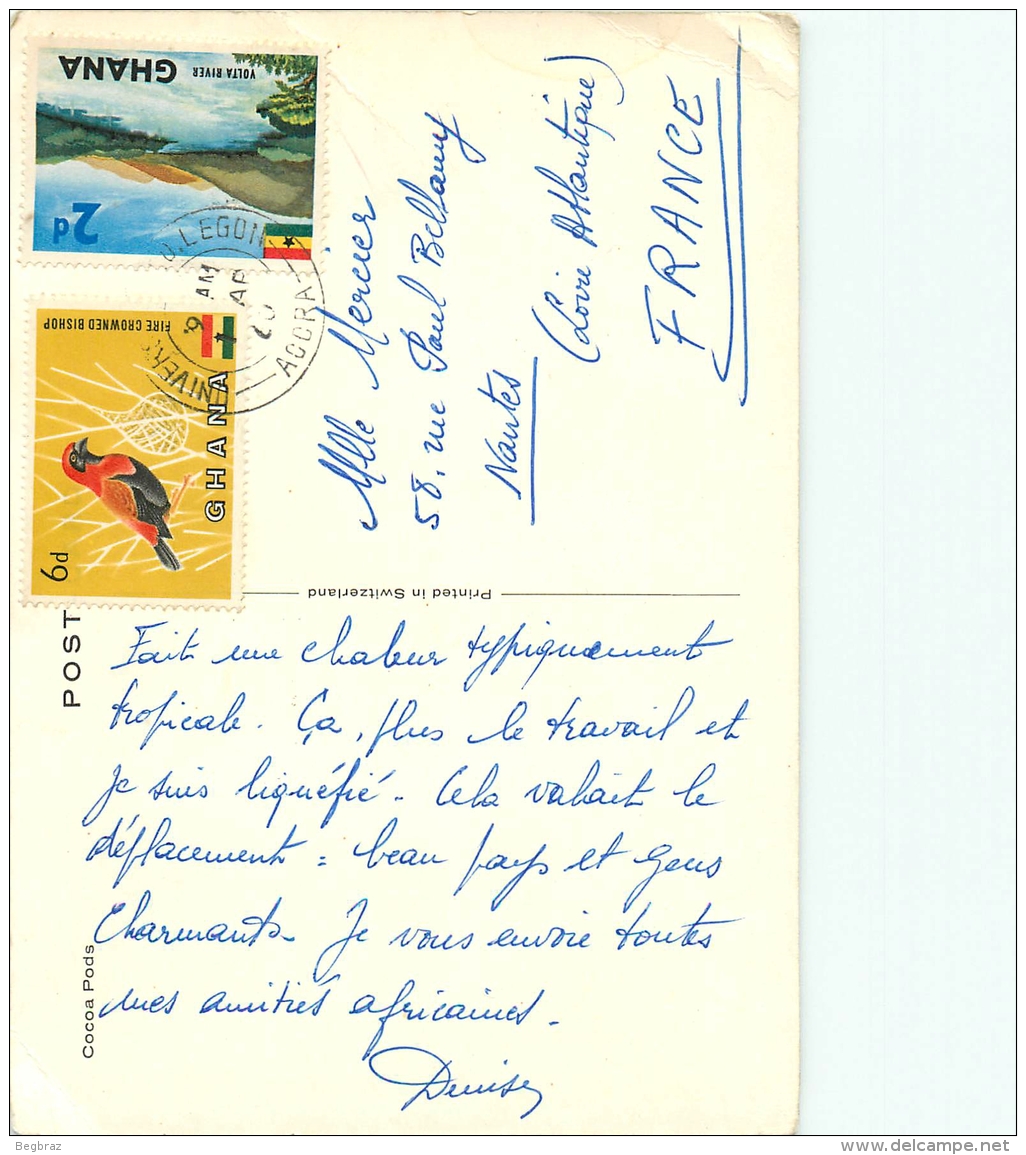 GHANA
VOLTA RIVER
2d
FIRE CROWNED BISHOP
GHANA
6d
LEGON
ACCRA
9 AM
AP
POST
Cocoa Pods
Printed in Switzerland
Mlle Mercier
58, rue Paul Bellamy
Nantes
(Loire Atlantique)
FRANCE
Fait une chaleur typiquement
tropicale. Ça, plus le travail et
je suis liquéfié. Cela valait le
déplacement : beau pays et gens
charmants. Je vous envoie toutes
mes amitiés africaines.
Begbraz
www.delcampe.net